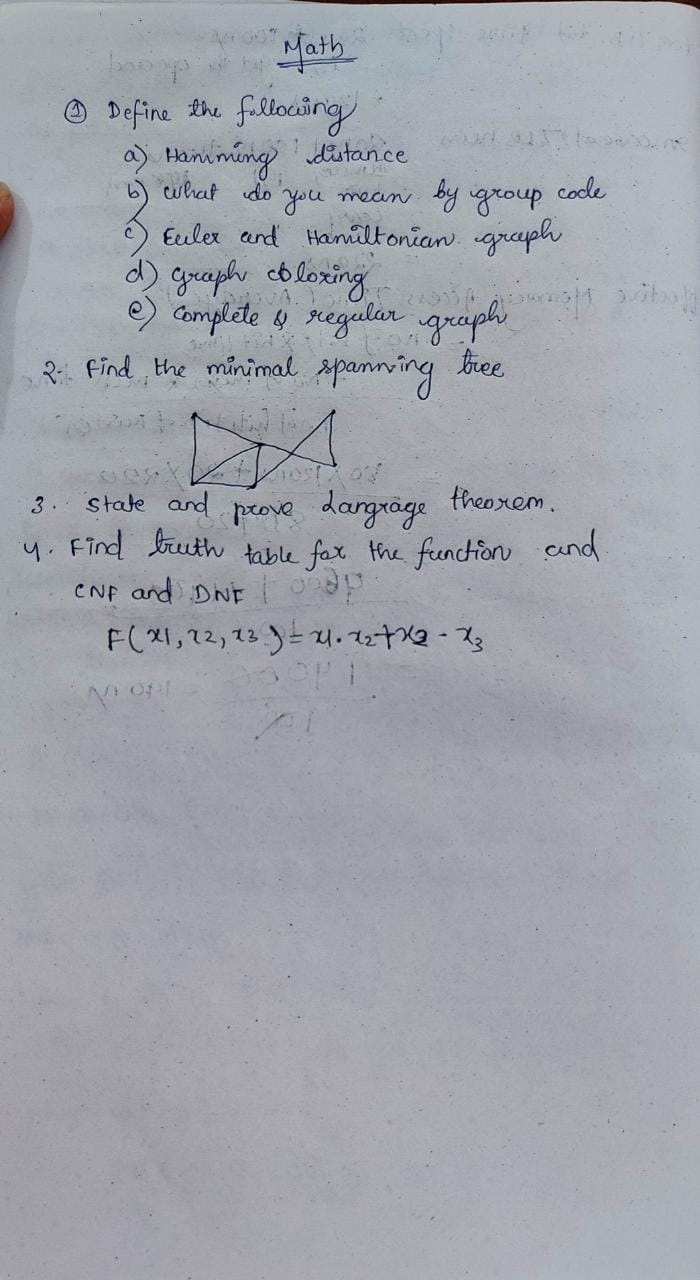 Math
① Define the following
a) Hamming distance
b) What do you mean by group code
c) Euler and Hamiltonian graph
d) graph coloring
e) Complete & regular graph
2. Find the minimal spanning tree
3. State and prove Langrage theorem.
4. Find truth table for the function and
CNF and DNF
F(x1, x2, x3) = x1. x2 + x2 - x3